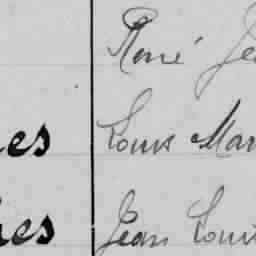 René Je
es Louis Mar
es Jean Loui